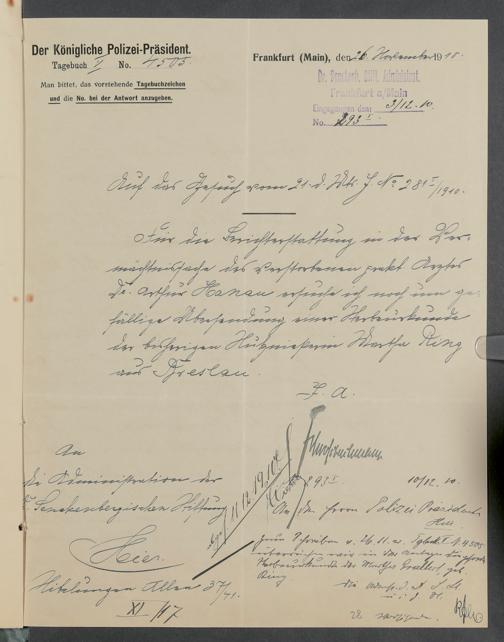 Der Königliche Polizei-Präsident.
Tagebuch V No. 4505
Man bittet, das vorstehende Tagebuchzeichen
und die No. bei der Antwort anzugeben.
Frankfurt (Main), den 26. November 1910.
Dr. Senckenb. Stift. Administrat.
Frankfurt a/Main
Eingegangen den: 3/12.10.
No. 293 I.
Auf das Gesuch vom 21. d. Mts. J. No 281 I/1910.
Für die Berichterstattung in der Ver-
mächtnissache des verstorbenen prakt. Arztes
Dr. Arthur Hanau ersuche ich noch um ge-
fällige Übersendung einer Sterbeurkunde
der bisherigen Martha Ring
aus Breslau.
J. A.
An
die Administration der
Dr. Senckenbergischen Stiftung
Hier.
Nibelungen Allee 37/41.
XI/17
11.12.1910
293 I. 10/12. 10.
An den Herrn Polizei Präsident
Hier.
Zum Schreiben v. 26.11. Tgb. No. 4505
wir in der Anlage die
Sterbeurkunde der Martha geb.
Ring
die